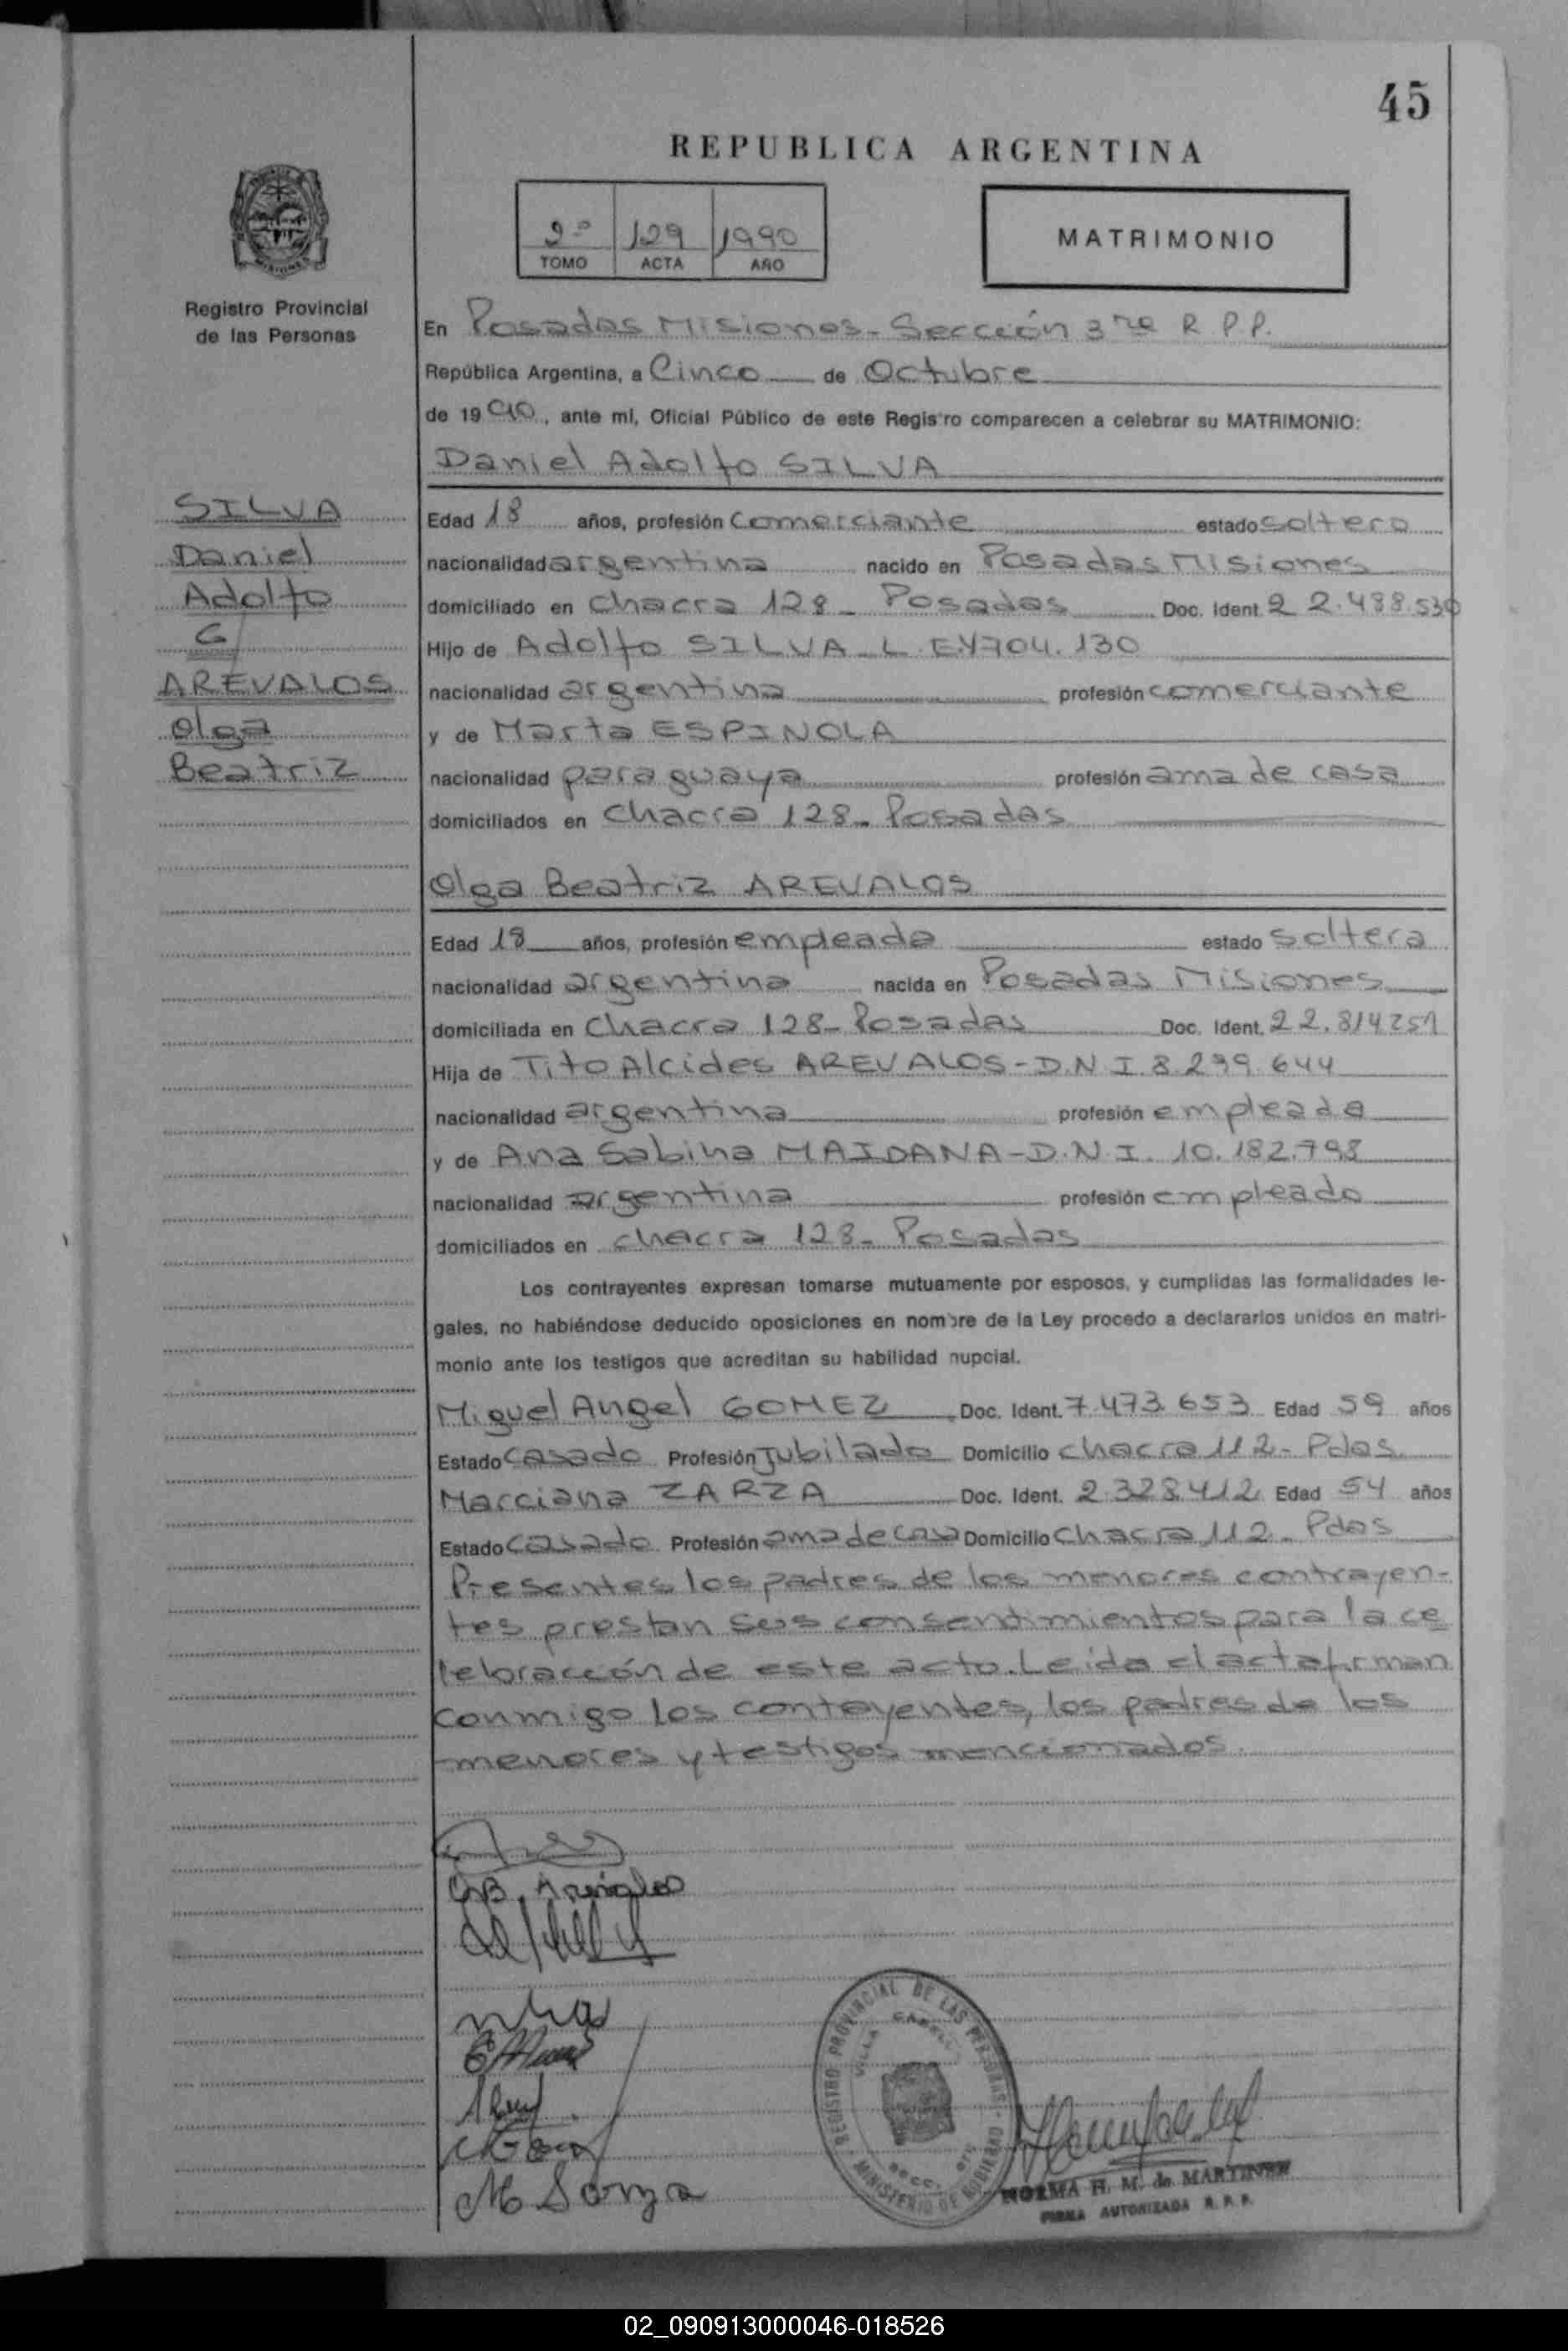 45
REPUBLICA ARGENTINA
2º 129 1990
TOMO ACTA AÑO
MATRIMONIO
MISIONES
Registro Provincial
de las Personas
En Posadas Misiones - Sección 3ra R.P.P.
República Argentina, a Cinco de Octubre
de 1990, ante mí, Oficial Público de este Registro comparecen a celebrar su MATRIMONIO:
Daniel Adolfo SILVA
SILVA
Daniel
Adolfo
C/
AREVALOS
Olga
Beatriz
Edad 18 años, profesión Comerciante estado soltero
nacionalidad argentina nacido en Posadas Misiones
domiciliado en chacra 128 - Posadas Doc. Ident. 22.488.530
Hijo de Adolfo SILVA - L.E. 704.130
nacionalidad argentina profesión comerciante
y de Marta ESPINOLA
nacionalidad paraguaya profesión ama de casa
domiciliados en chacra 128 - Posadas
Olga Beatriz AREVALOS
Edad 18 años, profesión empleada estado soltera
nacionalidad argentina nacida en Posadas Misiones
domiciliada en chacra 128 - Posadas Doc. Ident. 22.814251
Hija de Tito Alcides AREVALOS - D.N.I. 8.299.644
nacionalidad argentina profesión empleada
y de Ana Sabina MAIDANA - D.N.I. 10.182.798
nacionalidad argentina profesión empleado
domiciliados en chacra 128 - Posadas
Los contrayentes expresan tomarse mutuamente por esposos, y cumplidas las formalidades le-
gales, no habiéndose deducido oposiciones en nombre de la Ley procedo a declararlos unidos en matri-
monio ante los testigos que acreditan su habilidad nupcial.
Miguel Angel GOMEZ Doc. Ident. 7.473.653 Edad 59 años
Estado casado Profesión Jubilado Domicilio chacra 112 - Pdas
Marciana ZARZA Doc. Ident. 2.328.412 Edad 54 años
Estado casado Profesión ama de casa Domicilio chacra 112 - Pdas
Presentes los padres de los menores contrayen-
tes prestan sus consentimientos para la ce
lebracción de este acto. Leida el acta firman
conmigo los contayentes, los padres de los
menores y testigos mencionados.
O.B. Arevalos
REGISTRO PROVINCIAL DE LAS PERSONAS - MINISTERIO DE GOBIERNO
VILLA CABELLO
SECC.
NORMA H. M. de MARTINEZ
FIRMA AUTORIZADA R. P. P.
02_090913000046-018526